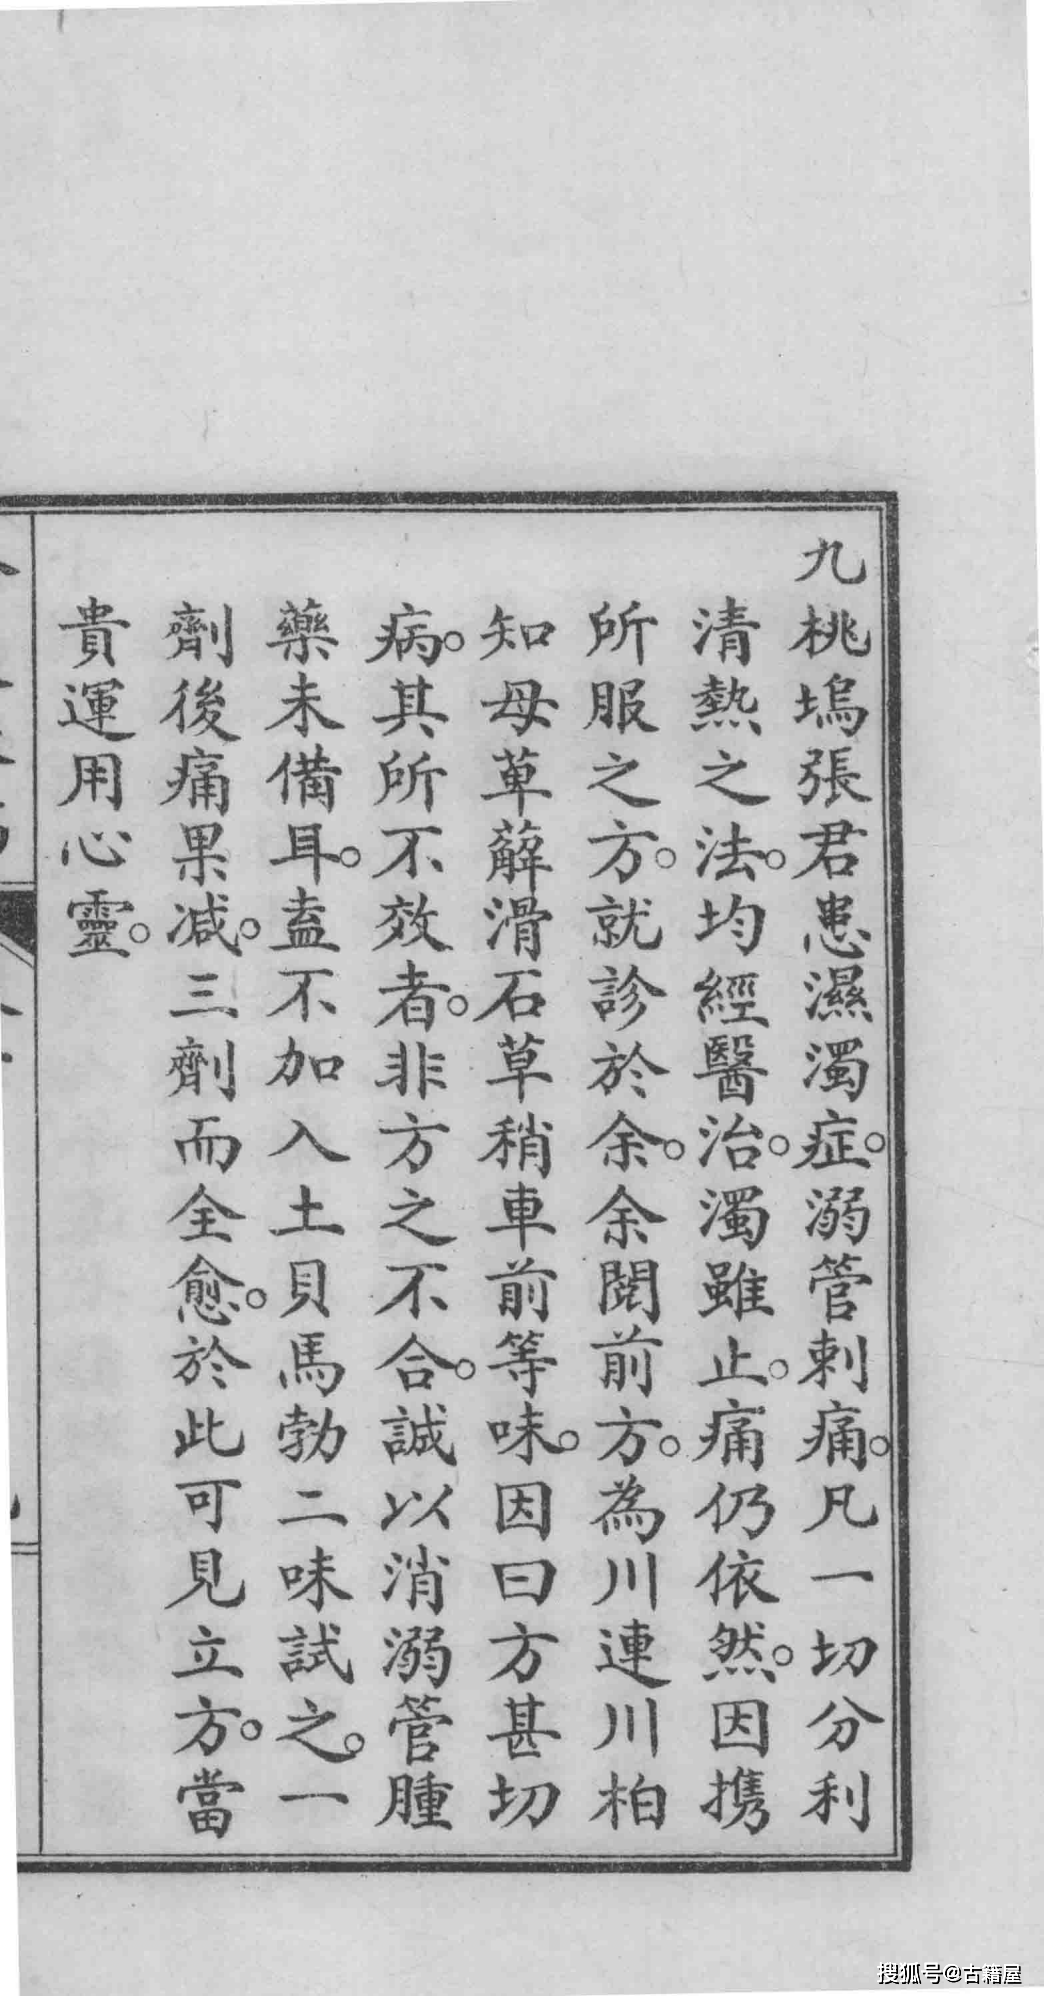 九桃塢張君患濕濁症。溺管刺痛。凡一切分利
清熱之法。均經醫治。濁雖止。痛仍依然。因携
所服之方。就診於余。余閱前方。為川連川柏
知母萆薢滑石草稍車前等味。因曰方甚切
病。其所不效者。非方之不合。誠以消溺管腫
藥未備耳。盍不加入土貝馬勃二味試之。一
劑後痛果減。三劑而全愈。於此可見立方。當
貴運用心靈。
搜狐号@古籍屋